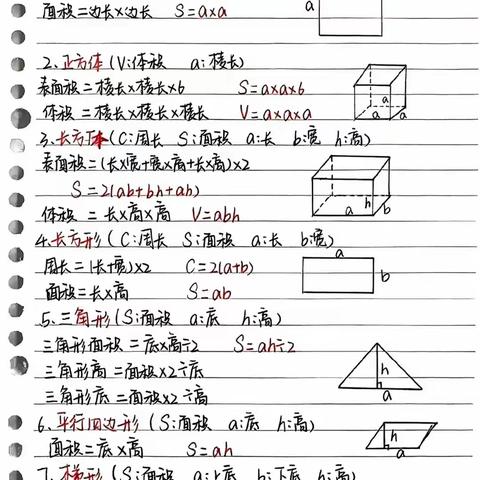 面积=边长×边长 S=a×a
a
2、正方体(V:体积 a:棱长)
表面积=棱长×棱长×6 S=a×a×6
体积=棱长×棱长×棱长 V=a×a×a
a
a a
3、长方体(C:周长 S:面积 a:长 b:宽 h:高)
表面积=(长×宽+宽×高+长×高)×2
S=2(ab+bh+ah)
体积=长×高×高 V=abh
h
a b
4、长方形(C:周长 S:面积 a:长 b:宽)
周长=(长+宽)×2 C=2(a+b)
面积=长×高 S=ab
a
b
5、三角形(S:面积 a:底 h:高)
三角形面积=底×高÷2 S=ah÷2
三角形高=面积×2÷底
三角形底=面积×2÷高
h
a
6、平行四边形(S:面积 a:底 h:高)
面积=底×高 S=ah
h
a
7、梯形(S:面积 a:上底 b:下底 h:高)